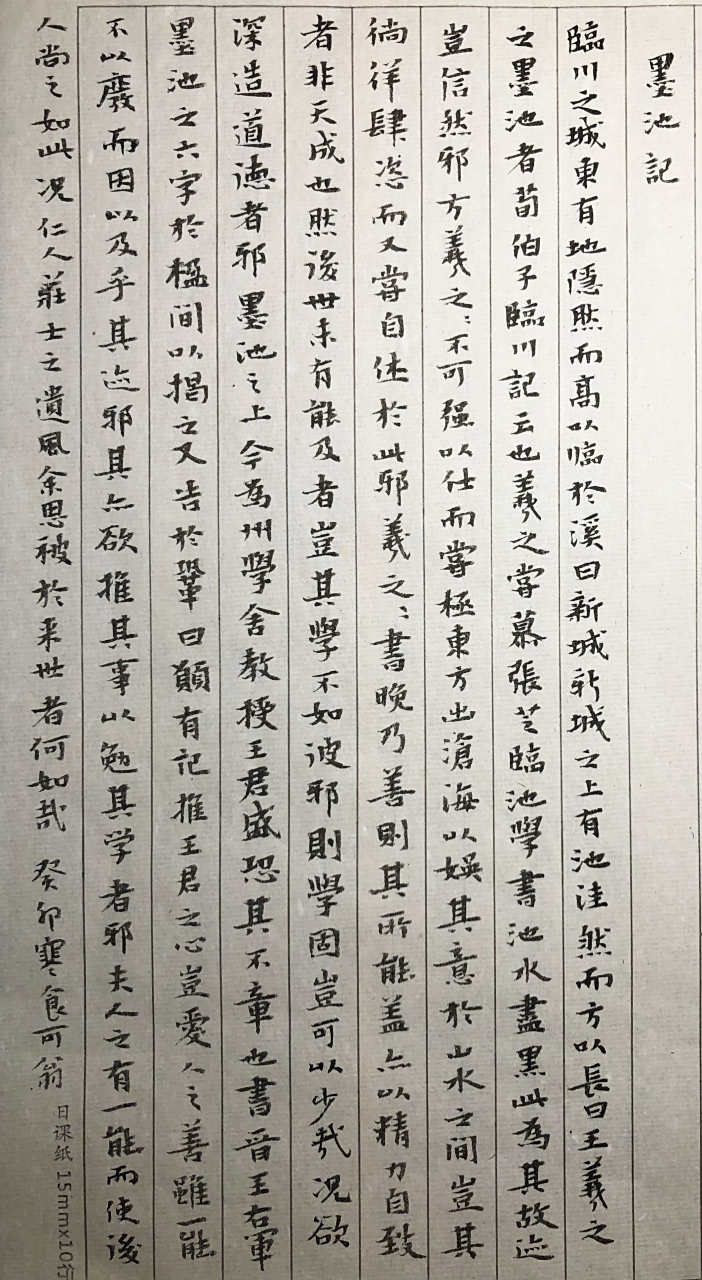 墨池記
臨川之城東有地隱然而高以臨於溪曰新城新城之上有池洼然而方以長曰王羲之
之墨池者荀伯子臨川記云也羲之嘗慕張芝臨池學書池水盡黑此為其故迹
豈信然邪方羲之〻不可强以仕而嘗極東方出滄海以娛其意於山水之間豈其
徜徉肆恣而又嘗自休於此邪羲之〻書晚乃善則其所能盖亦以精力自致
者非天成也然後世未有能及者豈其學不如彼邪則學固豈可以少哉况欲
深造道德者邪墨池之上今為州學舍教授王君盛恐其不章也書晉王右軍
墨池之六字於楹間以揭之又告於鞏曰願有記推王君之心豈愛人之善雖一能
不以廢而因以及乎其迹邪其亦欲推其事以勉其学者邪夫人之有一能而使後
人尚之如此况仁人莊士之遺風余思被於来世者何如哉 癸卯寒食可翁
日课纸 15mmx10行